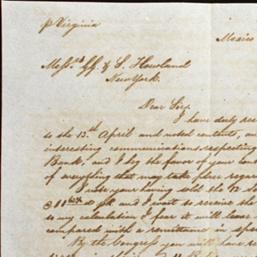 p Virginia
Mexico
Mess.rs G. G. & S. Howland
New York.
Dear Sirs,
I have duly rec
to the 13.th April and noted contents, an
interesting communications respecting
Bank, and I beg the favor of your con
of everything that may take place regar
I note your having sold the 12
and I wait to receive the
to my calculation I fear it will leave
compared with a remittance in spec
By the Congress you will have re